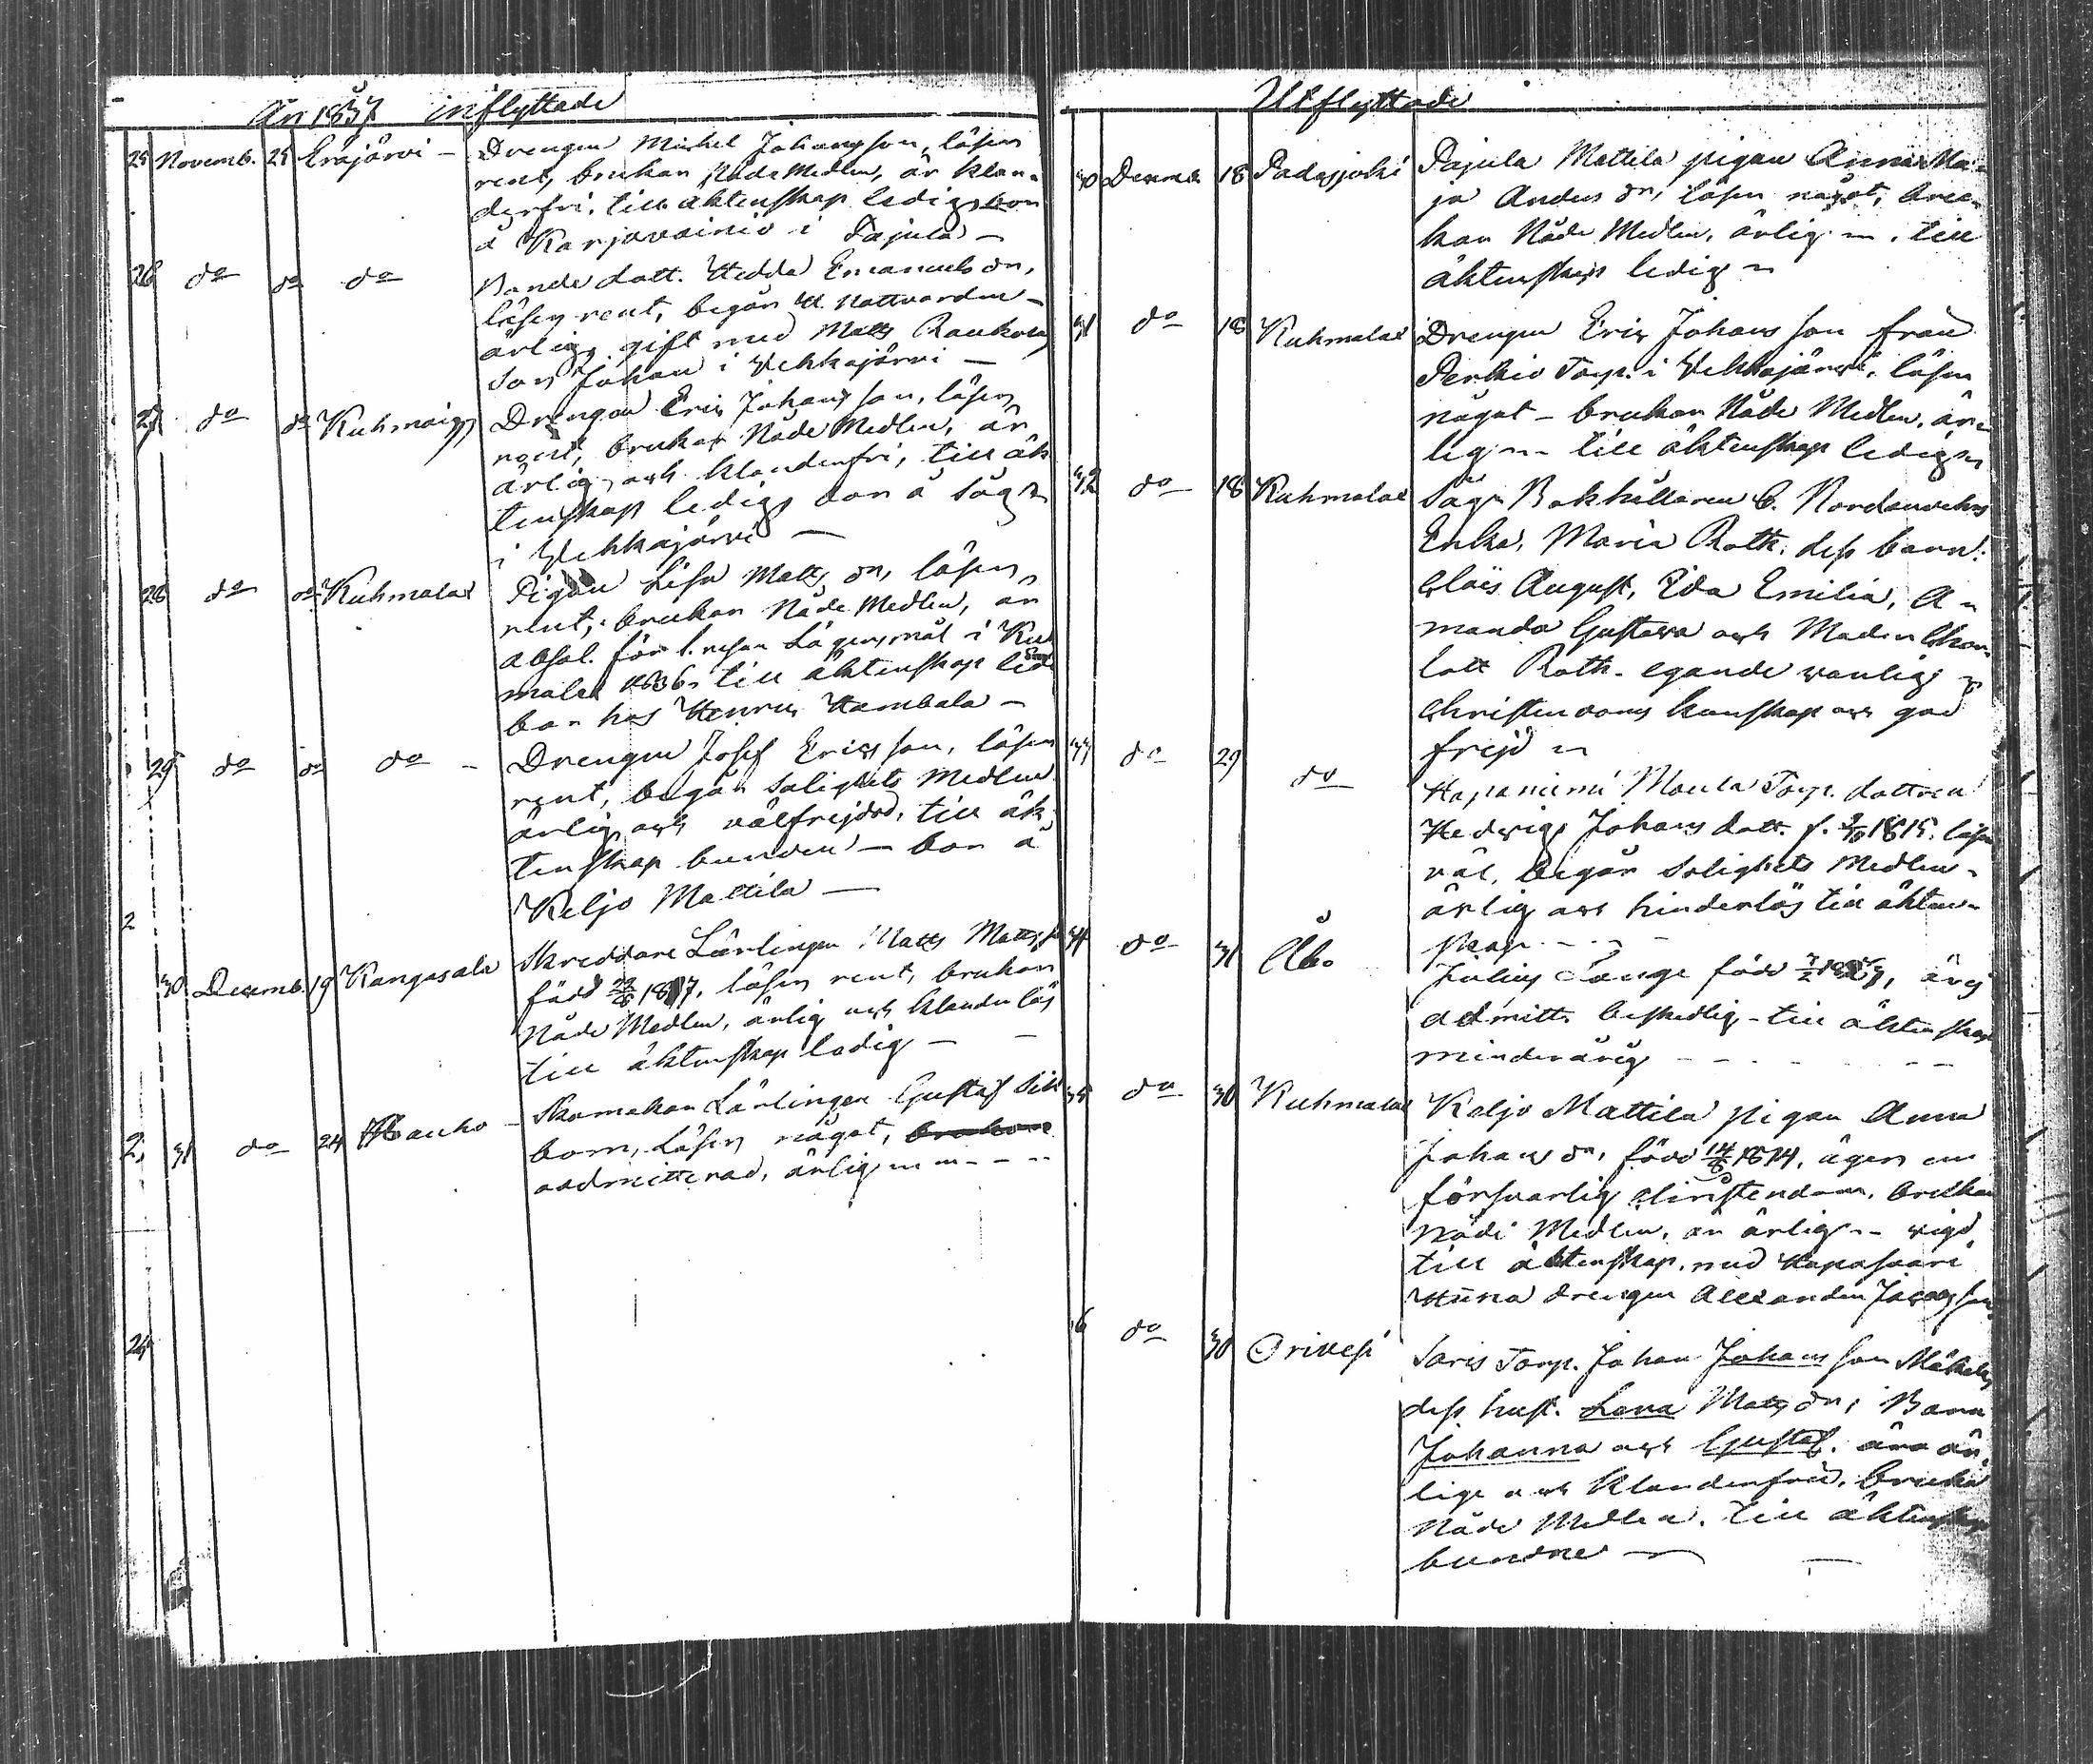 År 1837 inflyttade
25 Novemb. 25 Eräjärvi - Drengen Michel Johansson, läser
rent, brukar Nåde Medlen, är klan-
derfri, till äktenskap ledig, bor
å Karjavainio i Pajula -
26 do do do Bonde dott. Hedda Emanuels dr,
läser rent, begår H. Nattvarden -
ärlig, gift med Matts Raukola
son Johan i Vehkajärvi -
27 do do Kuhmois Drengen Eric Johansson, läser
rent, brukar Nåde Medlen, är
ärlig och klanderfri, till äk
tenskap ledig, bor å Såg
i Vehkajärvi -
28 do do Kuhmalax Pigan Lisa Matts dr, läser
rent, brukar Nåde Medlen, är
absol. för 1. resan Lägersmål i Kuh
malax 1836, till äktenskap ledig
bor hos Henric Hambala -
29 do do do - Drengen Josef Ericsson, läser
rent, begår Salighets Medlen
ärlig och välfrejdad, till äk
tenskap bunden - bor å
Keljo Mattila -
2
30 Decemb. 19 Kangasala Skreddare Lärlingen Matts Matts
född 22/8 1817, läser rent, brukar
Nåde Medlen, ärlig och klanderlös
till äktenskap ledig - -
2, 31 do 24 Hauho - Skomakar Lärlingen Gustaf Sik
bom, Läser något, brukar
oadmitterad, ärlig
24
Utflyttade
30 Decemb. 18 Padasjoki Pajula Mattila pigan Anna Ma-
ja Anders dr, läser något, bru-
kar Nåde Medlen, ärlig, till
äktenskap ledig
31 do 18 Kuhmalax Drengen Eric Johansson från
Perkiö Torp i Vehkajärvi, läser
något - brukar Nåde Medlen, är-
lig till äktenskap ledig
32 do 18 Kuhmalax Såg Bokhållaren C. Nordenswahns
Enka, Maria Roth, dess barn:
Claës August, Ida Emilia, A-
manda Gustava och Madn Char-
lott Roth. egande vanlig
Christendoms kunskap och god
frejd
33 do 29 do Hapaniemi Maula Torp. dottren
Hedvig Johans dott. f. 1815, läser
väl, begår Salighets Medlen -
ärlig och hinderlös till äkten-
skap - - -
34 do 31 Åbo Julius Lange född, är ej
admitt. beskedlig - till äktenskap
minderårig - - - -
35 do 30 Kuhmalax Keljo Mattila pigan Anna
Johans dr, född 14/8 1814, äger en
försvarlig christendom, brukar
Nåde Medlen, är ärlig - - vigd
till äktenskap, med Hapasaari
Huna drengen Alexander Jacobsson
36 do 30 Orivesi Saris Torp. Johan Johansson Mäkelä,
dess hust. Lena Matts dr, Barn
Johanna och Gustaf. äro är-
lige och klanderfrie, bruka
Nåde Medlen. till äktenskap
bundne - -